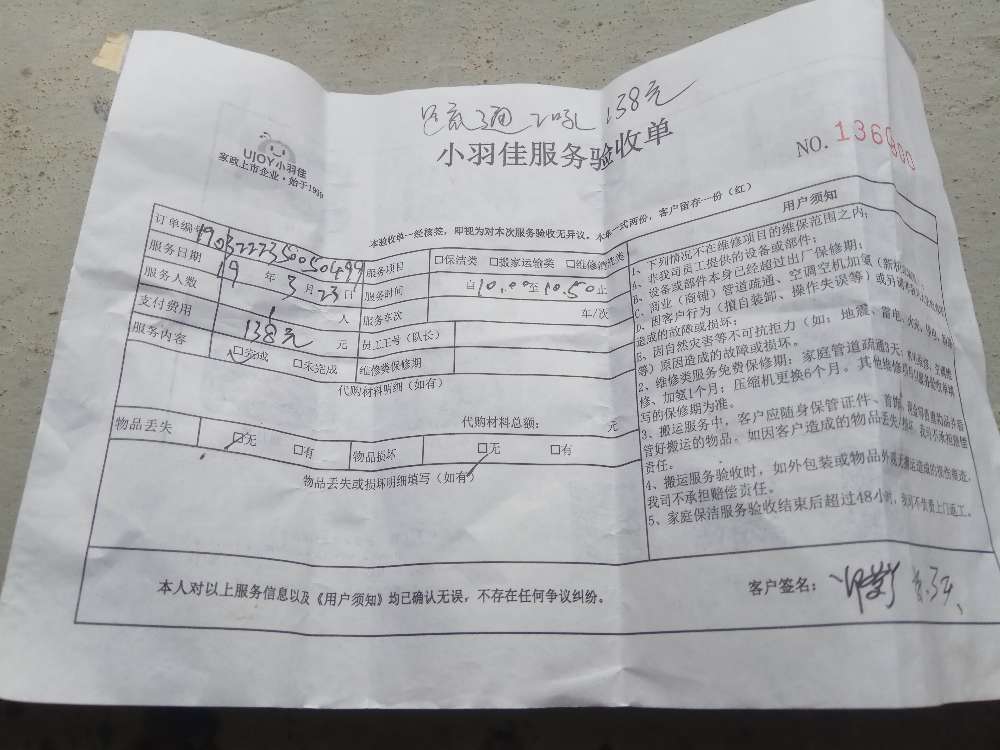 138元
小羽佳服务验收单
NO. 1360900
UJOY小羽佳
家政上市企业·始于1999
本验收单一经核签，即视为对本次服务验收无异议。本单一式两份，客户留存一份（红）
订单编号
服务项目 □保洁类 □搬家运输类 □维修清洗类
服务日期 19年3月23日 服务时间 自10.00至10.50止
服务人数 1人 服务车次 车/次
支付费用 138元 元 员工工号（队长）
服务内容 □完成 □未完成 维修类保修期
代购材料明细（如有）
代购材料总额： 元
物品丢失 □无 □有 物品损坏 □无 □有
物品丢失或损坏明细填写（如有）
用户须知
1、下列情况不在维修项目的维保范围之内：
A、非我司员工提供的设备或部件；
B、设备或部件本身已经超过出厂保修期；
C、商业（商铺）管道疏通、空调空机加氨（新机
D、因客户行为（擅自装卸、操作失误等）或另请
造成的故障或损坏；
E、因自然灾害等不可抗拒力（如：地震、雷电、水灾、
等）原因造成的故障或损坏。
2、维修类服务免费保修期：家庭管道疏通3天；
修、加氨1个月；压缩机更换6个月。其他维修项目
写的保修期为准。
3、搬运服务中，客户应随身保管证件、首饰、现金等贵重物品并
管好搬运的物品。如因客户造成的物品丢失/损坏，我司不承担赔偿
责任。
4、搬运服务验收时，如外包装或物品外观无搬运造成的损伤痕迹，
我司不承担赔偿责任。
5、家庭保洁服务验收结束后超过48小时，我司不负责上门返工。
本人对以上服务信息以及《用户须知》均已确认无误，不存在任何争议纠纷。
客户签名：